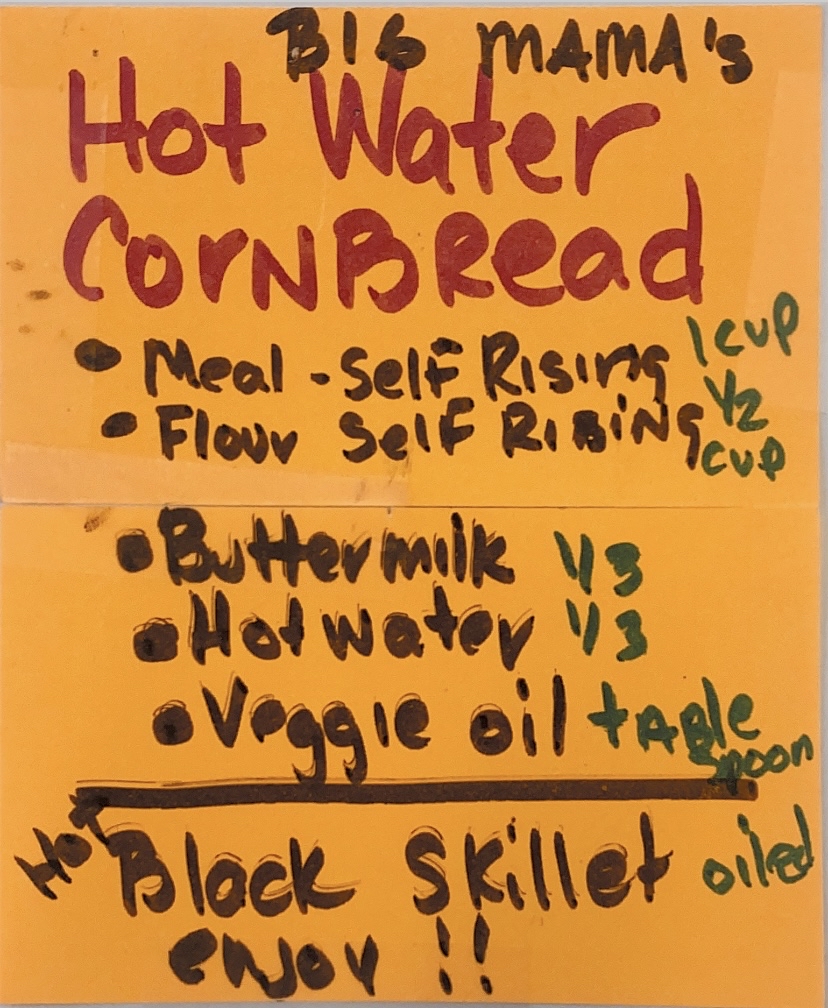 BIG MAMA's
Hot Water
CornBRead
• Meal - Self Rising 1 cup
• Flour Self RISING 1/2 cup
• Buttermilk 1/3
• Hot water 1/3
• Veggie oil tABle spoon
HOT Black Skillet oiled
enjoy !!